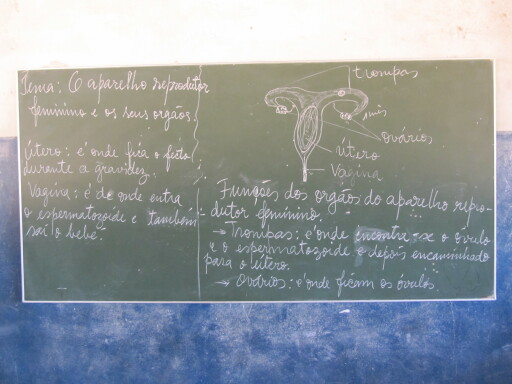 Tema: O aparelho reprodutor
feminino e os seus orgãos.
Útero: é onde fica o feto
durante a gravidez.
Vagina: é de onde entra
o espermatozoide e também
sai o bebé.
trompas
Ovários
Útero
Vagina
Funções dos orgãos do aparelho repro-
dutor feminino.
→ Trompas: é onde encontra-se o óvulo
e o espermatozoide e depois encaminhado
para o útero.
→ Ovários: é onde ficam os óvulos.